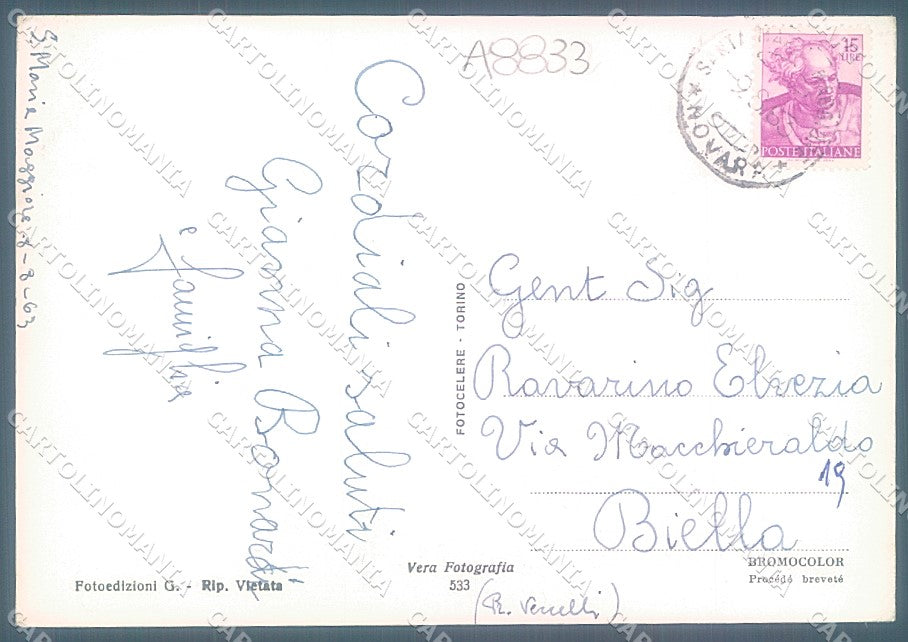 A8833
S. Maria Maggiore 8-8-63
Cordiali saluti
Gianna Bonardi
e famiglia
15
LIRE
POSTE ITALIANE
SANTA
NOVARA
FOTOCELERE - TORINO
Gent Sig
Ravarino Elvezia
Via Macchieraldo
19
Biella
(R. Vercelli)
Fotoedizioni G. - Rip. Vietata
Vera Fotografia
533
BROMOCOLOR
Procédé breveté
CARTOLINOMANIA